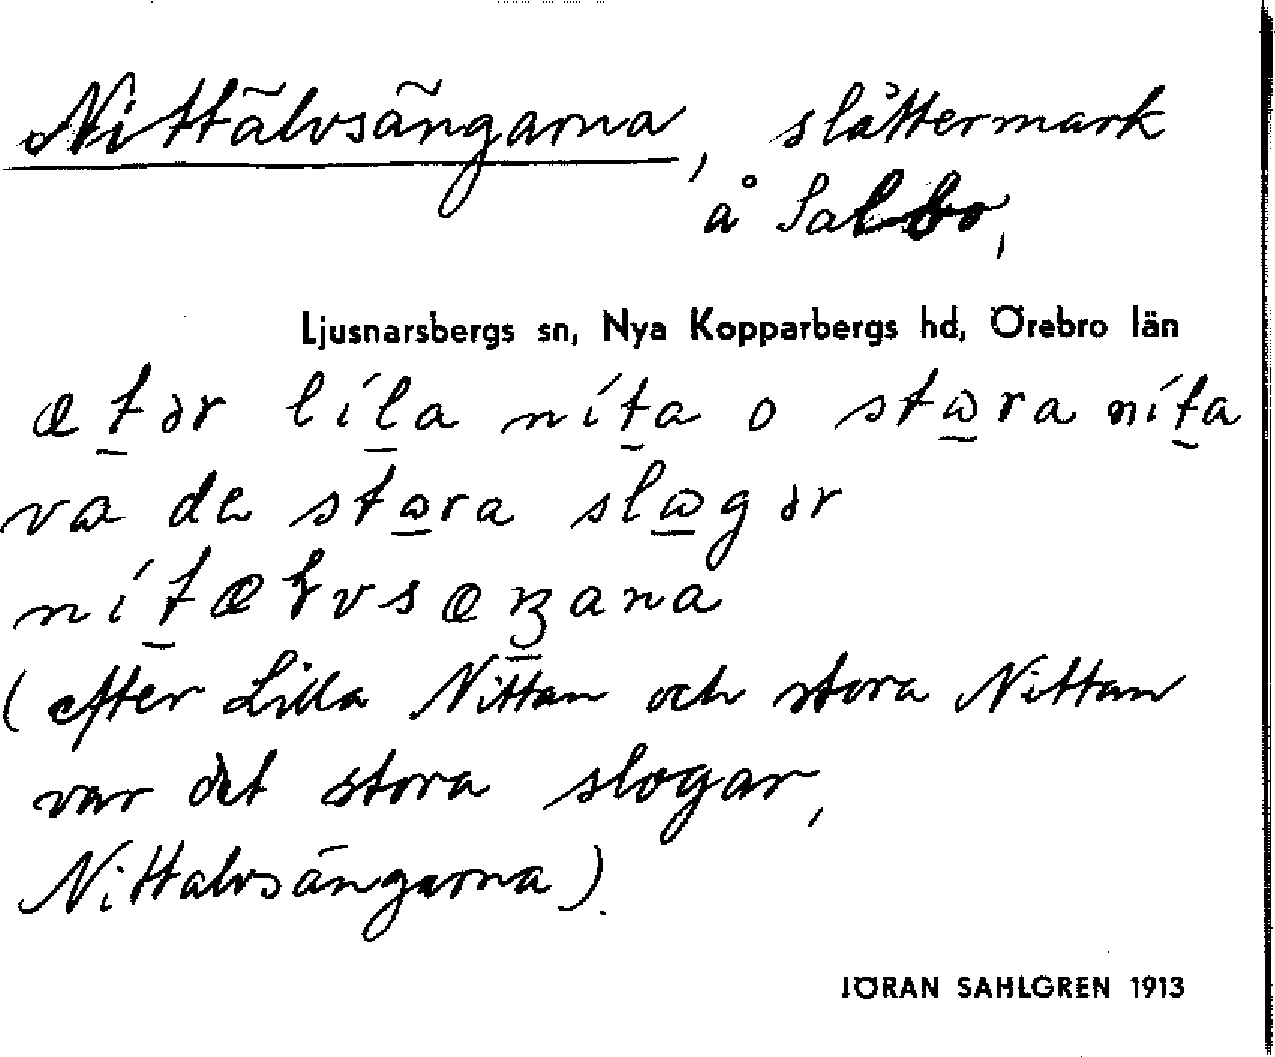 Nittälvsängarna, slåttermark
å Salbo,
Ljusnarsbergs sn, Nya Kopparbergs hd, Örebro län
ætər líla níta o stɷra níta
va de stɷra slɷgər
nítæɽvsæŋana
(efter Lilla Nittan och stora Nittan
var det stora slogar,
Nittalvsängarna).
JÖRAN SAHLGREN 1913